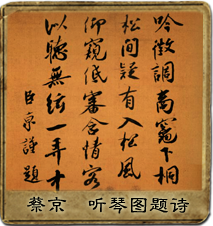 吟徵調商竈下桐
松間疑有入松風
仰窺低審含情客
以聽無絃一弄中
臣京謹題
蔡京 听琴图题诗